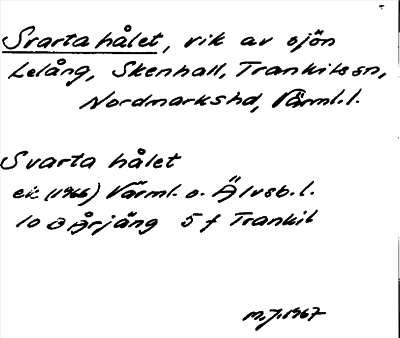 Svarta hålet, vik av sjön
Lelång, Skenhall, Trankils sn,
Nordmarks hd, Värml. l.
Svarta hålet
ek (1966) Värml. o. Älvsb. l.
10 Ö Årjäng 5 f Trankil
M.J. 1967